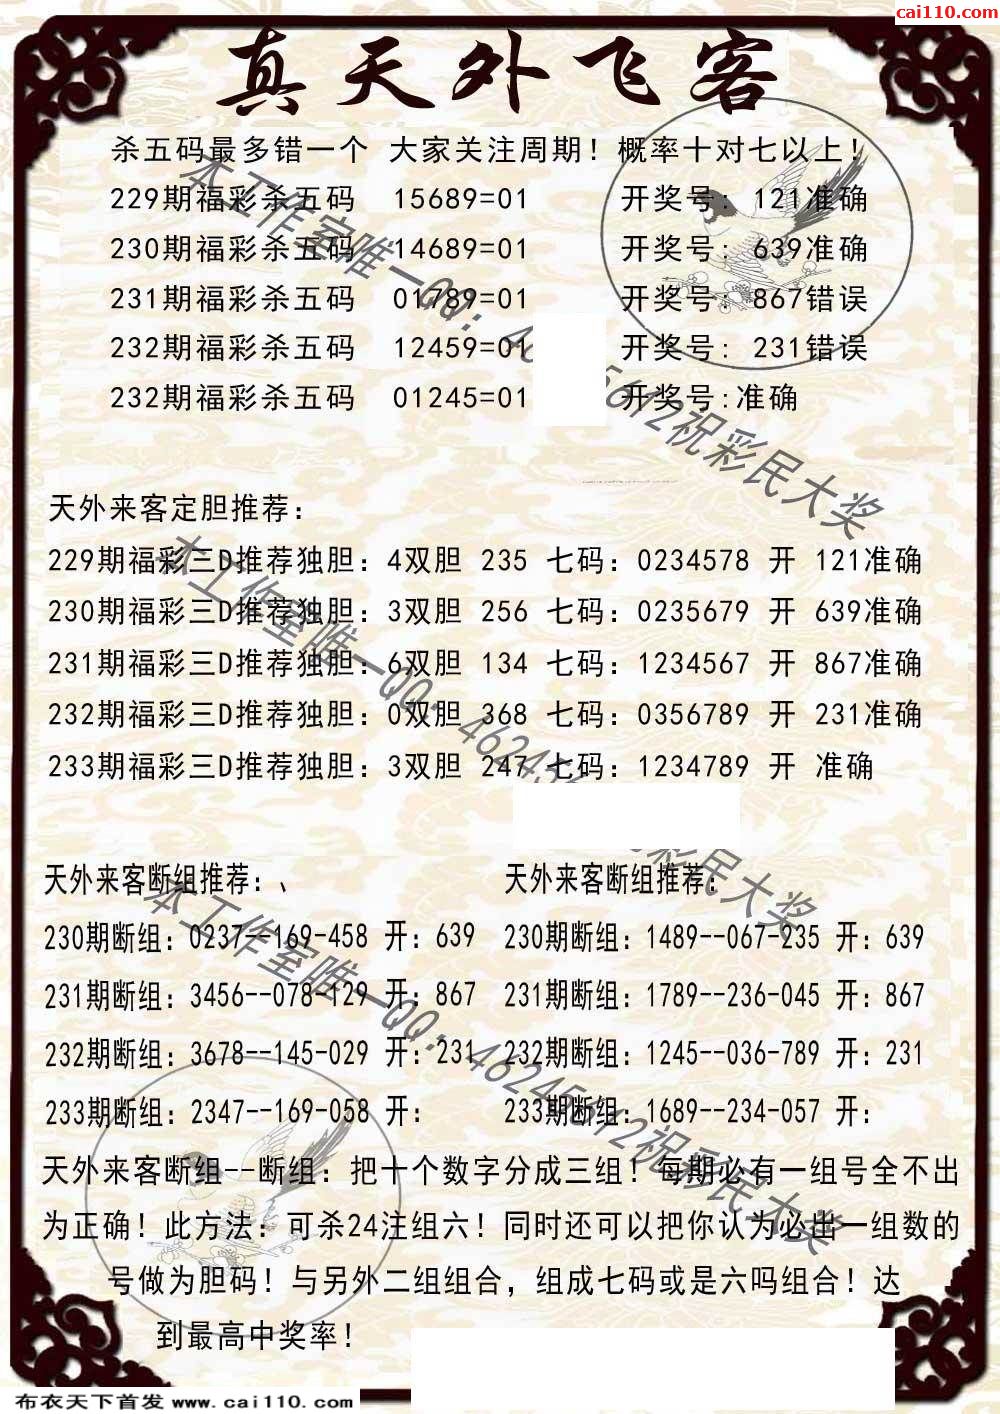 cai110.com
真天外飞客
杀五码最多错一个 大家关注周期！概率十对七以上！
229期福彩杀五码 15689=01 开奖号: 121准确
230期福彩杀五码 14689=01 开奖号: 639准确
231期福彩杀五码 01789=01 开奖号: 867错误
232期福彩杀五码 12459=01 开奖号: 231错误
232期福彩杀五码 01245=01 开奖号:准确
天外来客定胆推荐：
229期福彩三D推荐独胆：4双胆 235 七码：0234578 开 121准确
230期福彩三D推荐独胆：3双胆 256 七码：0235679 开 639准确
231期福彩三D推荐独胆：6双胆 134 七码：1234567 开 867准确
232期福彩三D推荐独胆：0双胆 368 七码：0356789 开 231准确
233期福彩三D推荐独胆：3双胆 247 七码：1234789 开 准确
天外来客断组推荐：、
230期断组：0237--169-458 开：639
231期断组：3456--078-129 开：867
232期断组：3678--145-029 开：231
233期断组：2347--169-058 开：
天外来客断组推荐：
230期断组：1489--067-235 开：639
231期断组：1789--236-045 开：867
232期断组：1245--036-789 开：231
233期断组：1689--234-057 开：
天外来客断组--断组：把十个数字分成三组！每期必有一组号全不出
为正确！此方法：可杀24注组六！同时还可以把你认为必出一组数的
号做为胆码！与另外二组组合，组成七码或是六吗组合！达
到最高中奖率！
本工作室唯一QQ：46 5612祝彩民大奖
本工作室唯一QQ：46245 彩民大奖
本工作室唯一QQ：46245612祝彩民大奖
布衣天下首发 www.cai110.com